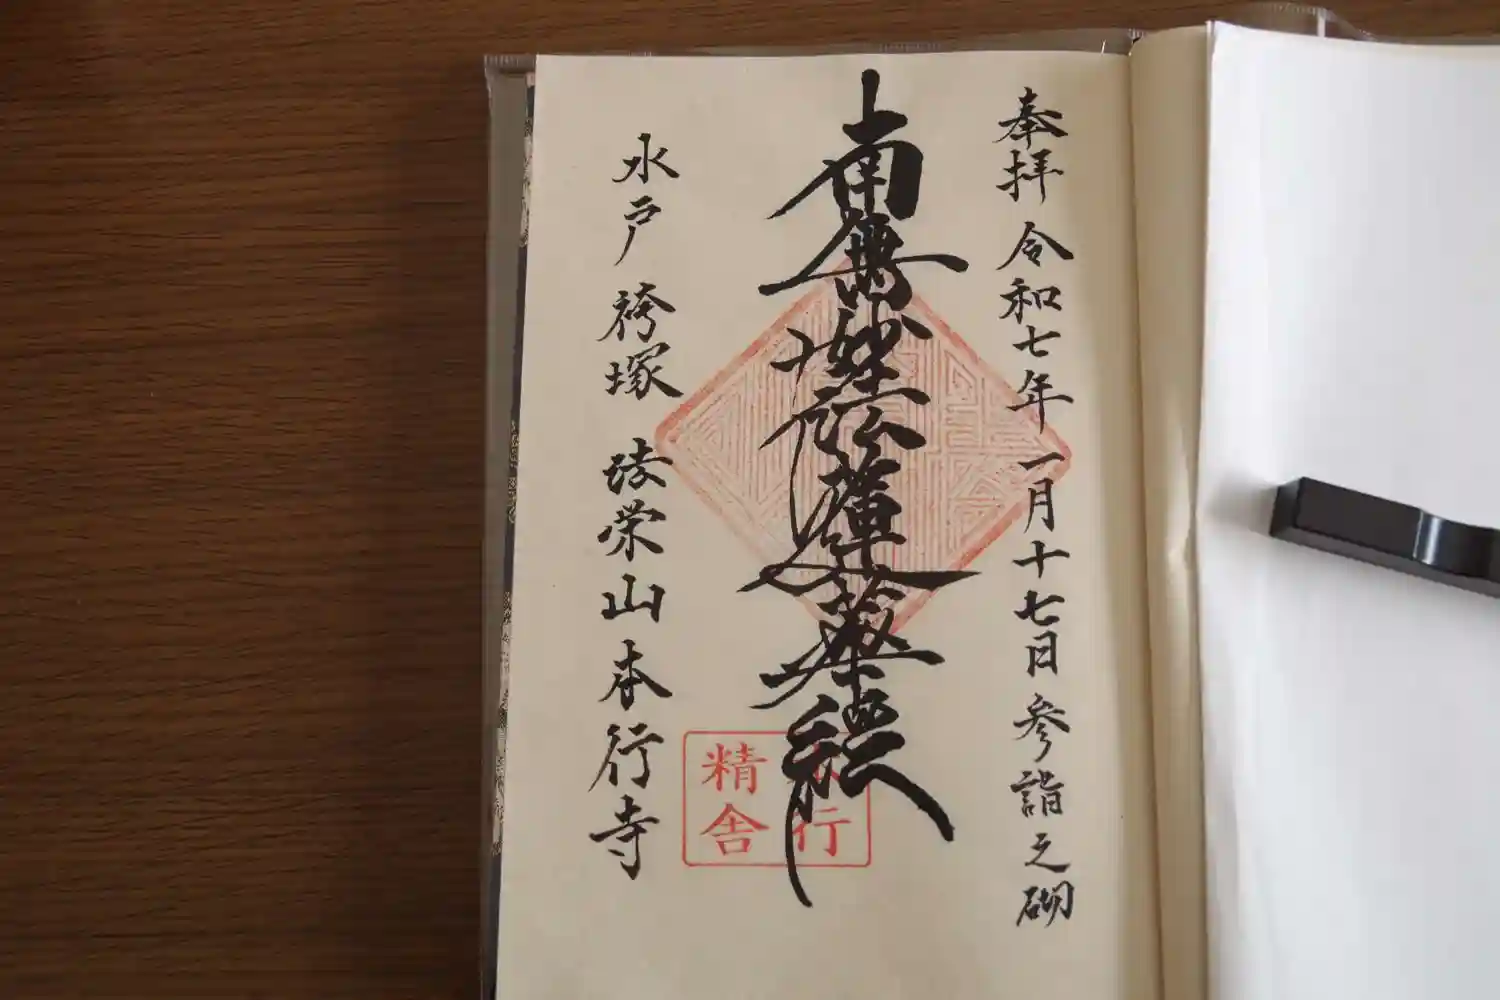 奉拝 令和七年一月十七日 参詣之砌
南無妙法蓮華経
水戸 袴塚 法栄山本行寺
本行
精舎